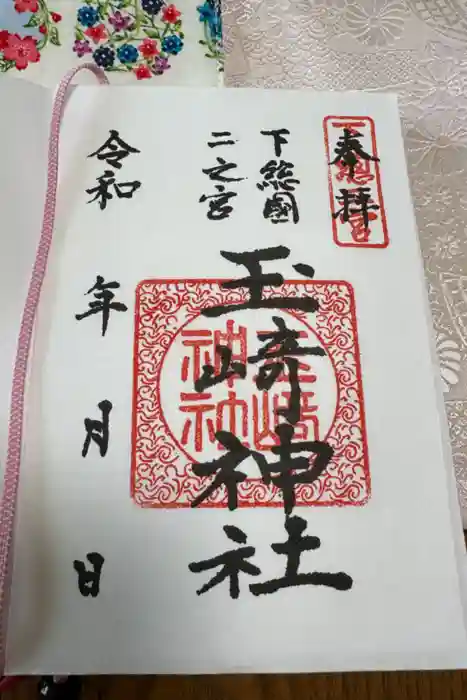 奉拝
下総國
二之宮
玉﨑神社
玉﨑
神社
令和 年 月 日